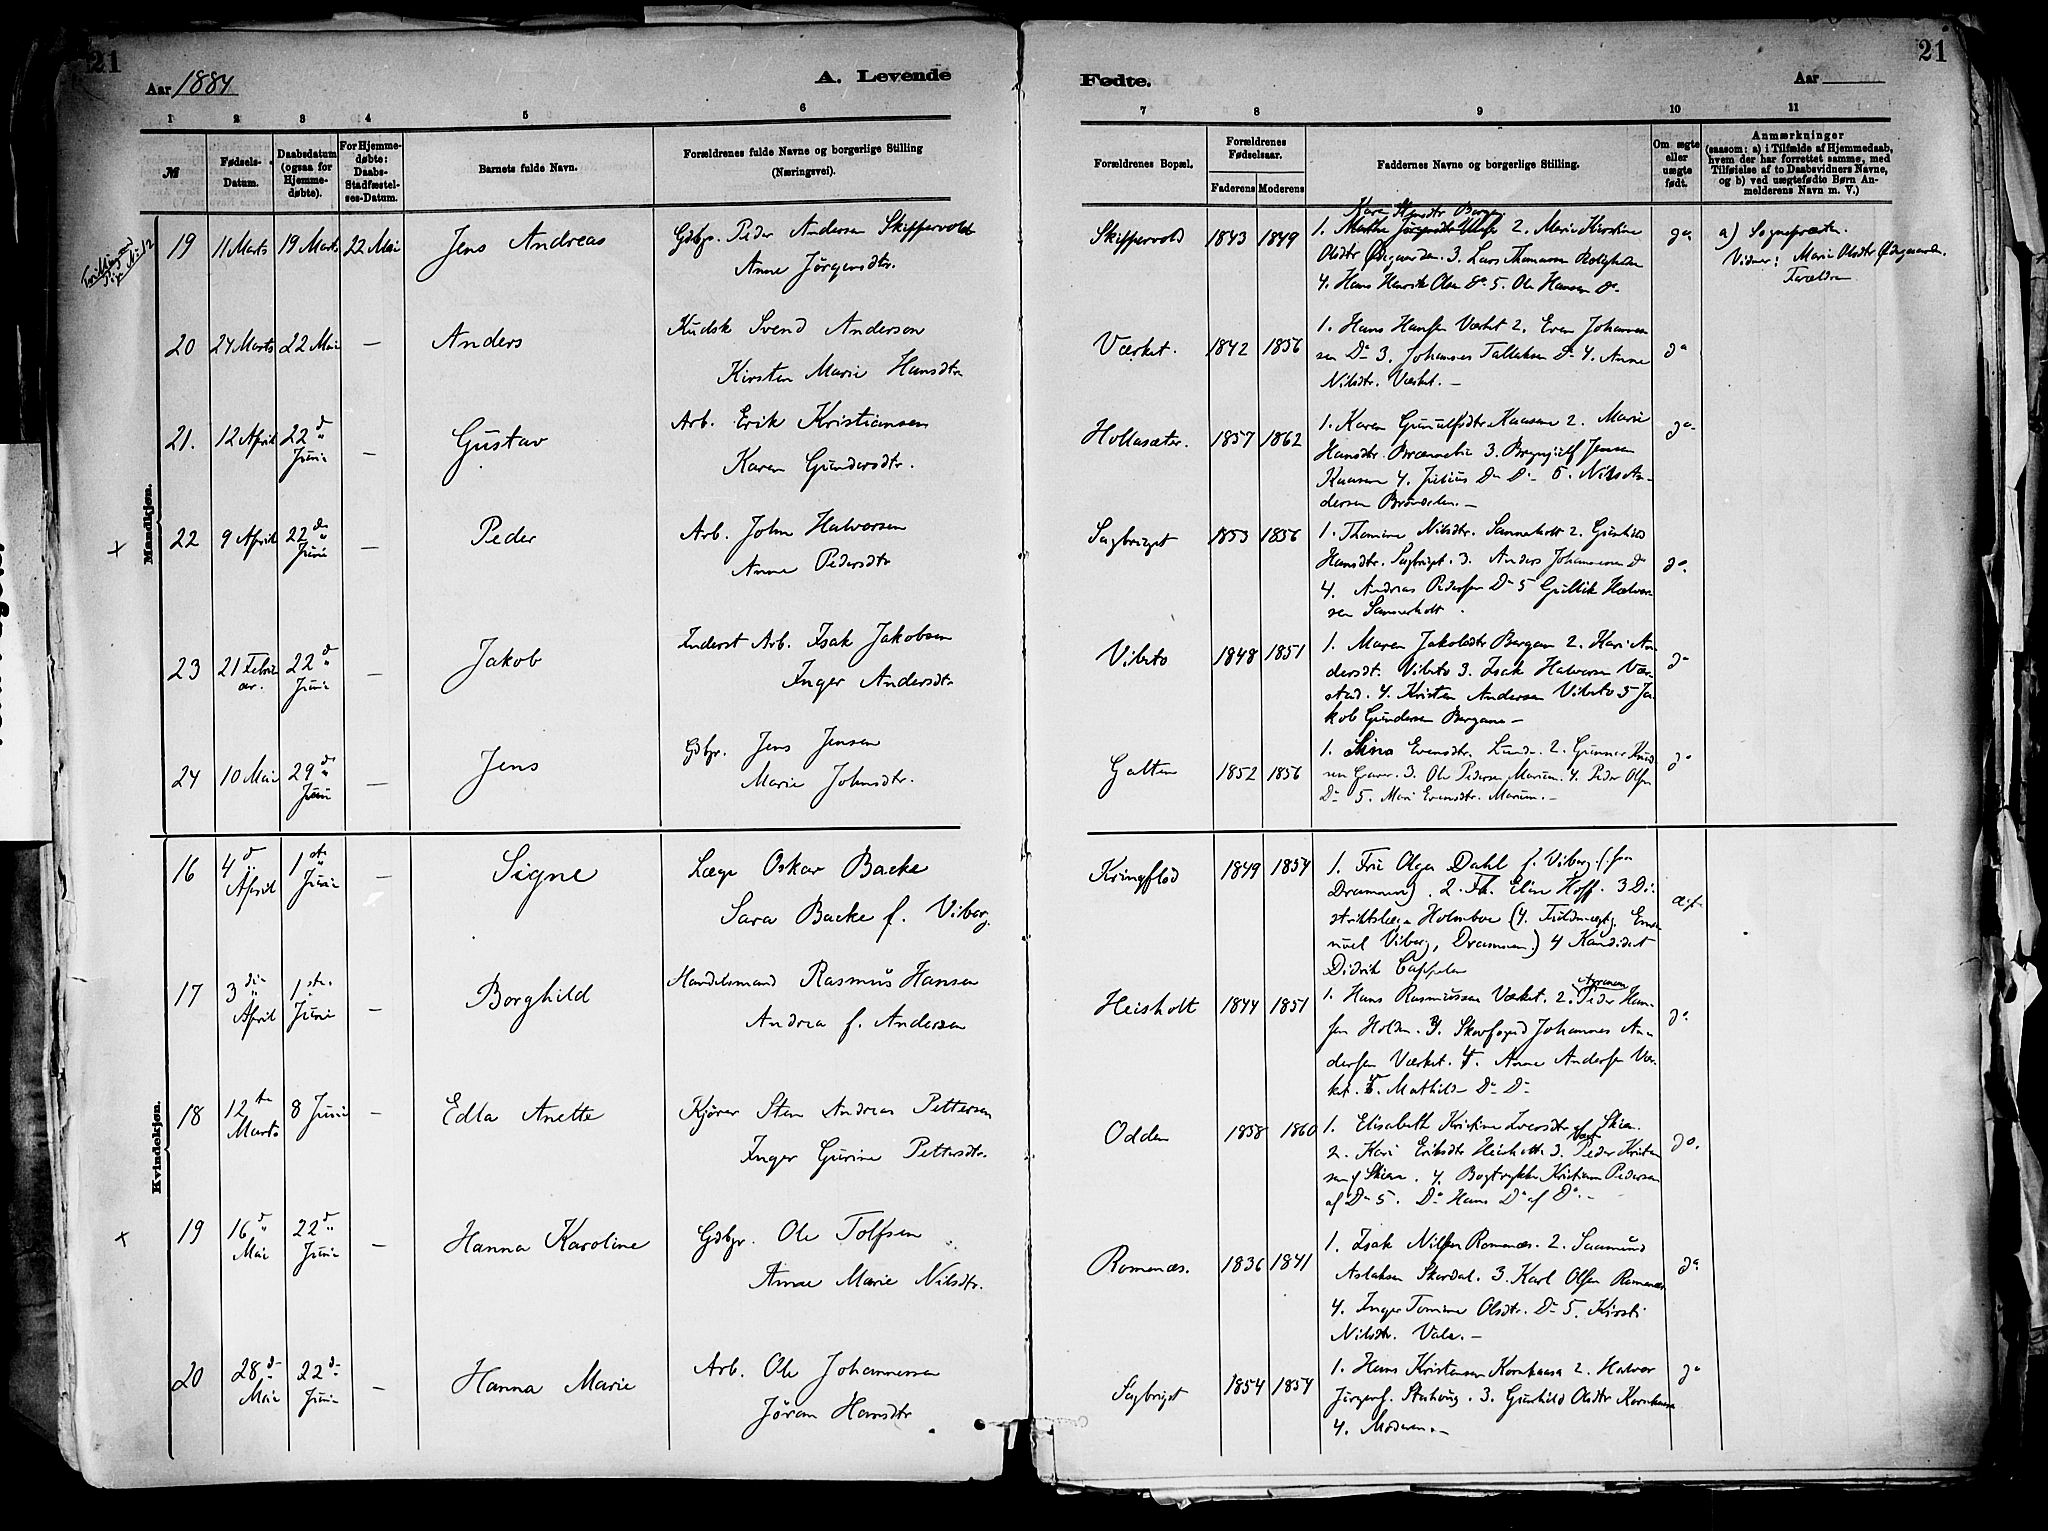 21
Aar 1884
A. Levende
1 2 3 4 5 6
№
Fødsels-Datum.
Daabsdatum (ogsaa for Hjemmedøbte).
For Hjemmedøbte: Daabs-Stadfæstelses-Datum.
Barnets fulde Navn.
Forældrenes fulde Navne og borgerlige Stilling (Næringsvei).
Mandkjøn.
19 11 Marts 19 Marts 22 Mai Jens Andreas Gdbr. Peder Andersen Skippervold
Anne Jørgensdtr.
20 24 Marts 22 Mai — Anders Kudsk Svend Anderson
Kirsten Marie Hansdtr
21. 12 April 22d Juni — Gustav Arb. Erik Kristiansen
Karen Gundersdtr.
22 9 April 22d Juni — Peder Arb. John Halvorsen
Anne Pedersdtr
23 21 Februar. 22d Juni — Jakob Inderst Arb. Isak Jakobsen
Inger Andersdtr
24 10 Mai 29d Juni — Jens Gdbr. Jens Jensen
Marie Johnsdtr.
Kvindekjøn.
16 4d April 1ste Juni — Signe Læge Oskar Backe
Sara Backe f. Viborg.
17 3die April 1ste Juni — Borghild Handelsmand Rasmus Hansen
Andrea f. Andersen
18 12te Marts 8 Juni — Edla Anette Kjører Sten Andreas Pettersen
Inger Gurine Pettersdtr.
19 16d Mai 22d Juni — Hanna Karoline Gdbgr. Ole Tolfsen
Anne Marie Nilsdtr.
20 28d Mai 22d Juni — Hanna Marie Arb. Ole Johannessen
Jøran Hansdtr.
Fødte.
Aar
21
7 8 9 10 11
Forældrenes Bopæl.
Forældrenes Fødselsaar.
Faderens Moderens
Faddernes Navne og borgerlige Stilling.
Om ægte eller uægte født.
Anmærkninger
(saasom: a) i Tilfælde af Hjemmedaab, hvem der har forrettet samme, med Tilføielse af to Daabsvidners Navne, og b) ved uægtefødte Børn Anmelderens Navn m. V.)
Skippervold 1843 1849 2. Marie Kirstine
Olsdtr Ødegaarden. 3. Lars Thomassen Bolighem
4. Hans Henrik Olsen Do 5. Ole Hansen Do
do
a) Sognepræsten.
Vidner: Marie Olsdtr Ødegaarden
Forældre
Værket. 1842 1856 1. Hans Hansen Værket 2. Even Johannes
sen Do 3. Johannes Tallaksen Do 4. Anne
Nilsdtr. Værket. —
do
Hollasæter. 1857 1862 1. Karen Gunulfsdtr Kaasene 2. Marie
Hansdtr. 3. Brynjulf Jensen
Kaasene 4. Julius Do Do 5. Nils An-
dersen —
do
Sagbruget 1853 1856 1. Thomine Nilsdtr. Sanneholt 2. Gunhild
Hansdtr. Sagbruget. 3. Anders Johannesen Do
4. Andreas Pedersen Do 5 Gullik Halvor
sen Sanneholt.
do.
Vibeto 1848 1851 1. Maren Jakobsdtr Bergan 2. Kari An-
dersdt. Vibeto 3. Isak Halvorsen Vær-
stad. 4. Kristen Andersen Vibeto 5 Ja-
kob Gundersen Bergane —
do
Galten 1852 1856 1. Stina Evensdtr. Lunde. 2. Gunner Knud
sen 3. Ole Pedersen Marum. 4. Peder Olsen
Do 5. Mari Evensdtr. Marum. —
do
Kringflod 1849 1854 1. Fru Olga Dahl f. Viborg. (fra
Drammen). 2. Frk. Elise Hoff. 3 Di-
striktslæge Holmboe (4. Fuldmægtig Ema-
nuel Viborg, Drammen.) 4 Kandidat
Didrik Cappelen
ægte
Heisholt 1844 1851 1. Hans Rasmussen Værket. 2. Agronom Peder Han-
sen Holden. 3. Skovfoged Johannes An-
dersen Værket. 4. Anne Andersen Vær-
ket. 5. Mathilde Do Do
do
Odden 1858 1860 1. Elisabeth Kristine Iversdtr af Skien.
2. Kari Eriksdtr Heisholt 3. Peder Kristen
sen af Skien. 4. Bogtrykker Kristian Pedersen
af Do 5. Do Hans Do af Do. —
do.
Romenæs. 1836 1841 1. Isak Nilsen Romenæs. 2. Saamund
Aslaksen Skordal. 3. Karl Olsen Romenæs
4. Inger Tomine Olsdtr. Do 5. Kirsti
Nilsdtr. Vala. —
do
Sagbruget 1854 1854 1. Hans Kristensen Kornhaua 2. Halvor
Jørgens. 3. Gunhild Olsdtr Kornhaua
4. Moderen. —
do